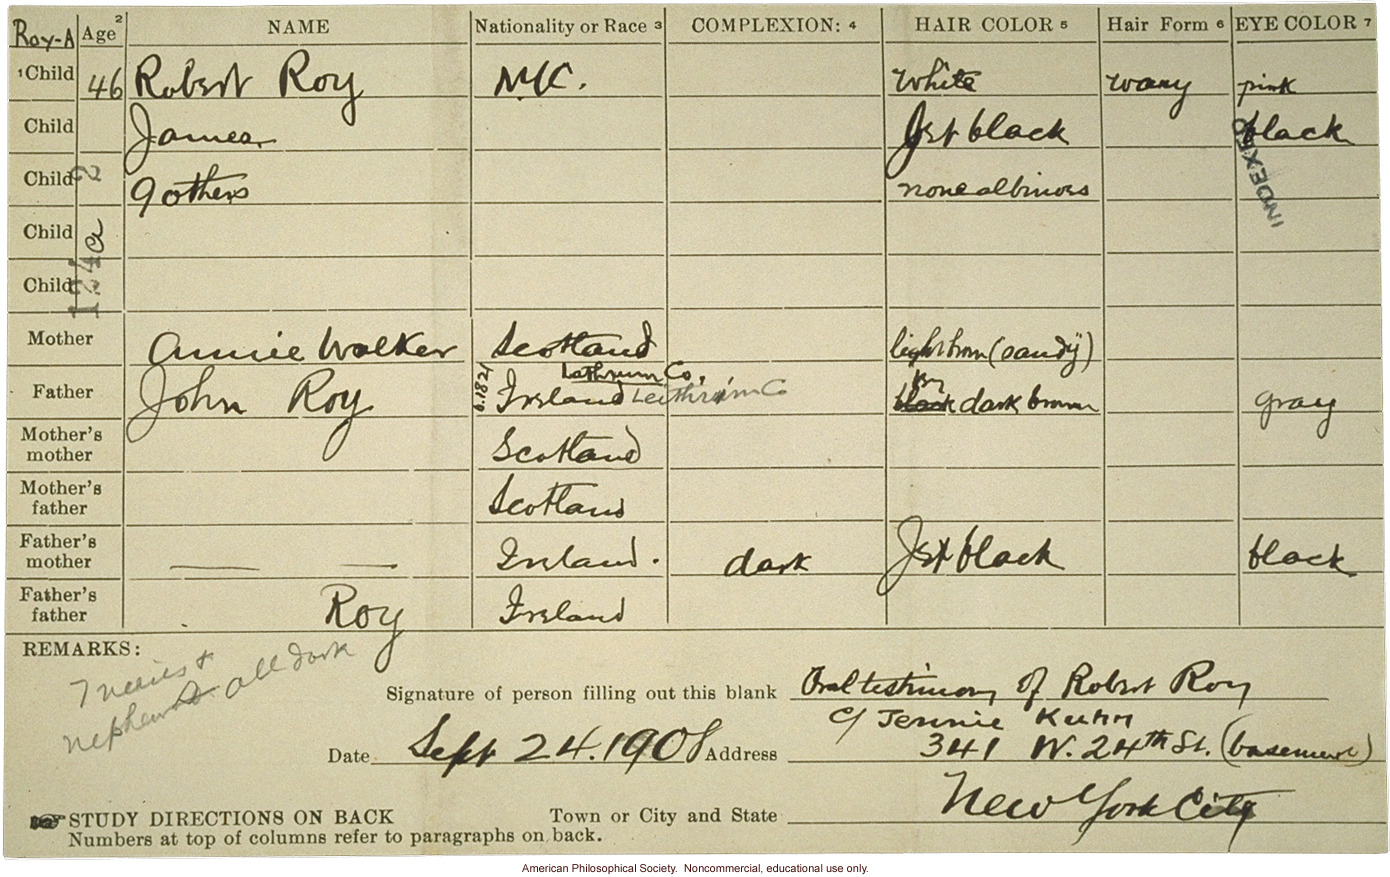 Roy-A Age 2 NAME Nationality or Race 3 COMPLEXION: 4 HAIR COLOR 5 Hair Form 6 EYE COLOR 7
1 Child 46 Robert Roy N.Y.C. White wavy pink
Child James Jet black black
Child 9 others none albinos
INDEXED
Child
Child
124a 2
Mother Annie Walker Scotland light brown (sandy)
Father John Roy b. 1821 Ireland Leithrim Co dark brown gray
Mother's mother Scotland
Mother's father Scotland
Father's mother Ireland. dark Jet black black
Father's father Roy Ireland
REMARKS:
7 nieces +
nephews all dark
Signature of person filling out this blank Oral testimony of Robert Roy
c/ Jennie Kuhn
Date Sept 24. 1908 Address 341 W. 24th St. (basement)
STUDY DIRECTIONS ON BACK Town or City and State New York City
Numbers at top of columns refer to paragraphs on back.
American Philosophical Society. Noncommercial, educational use only.